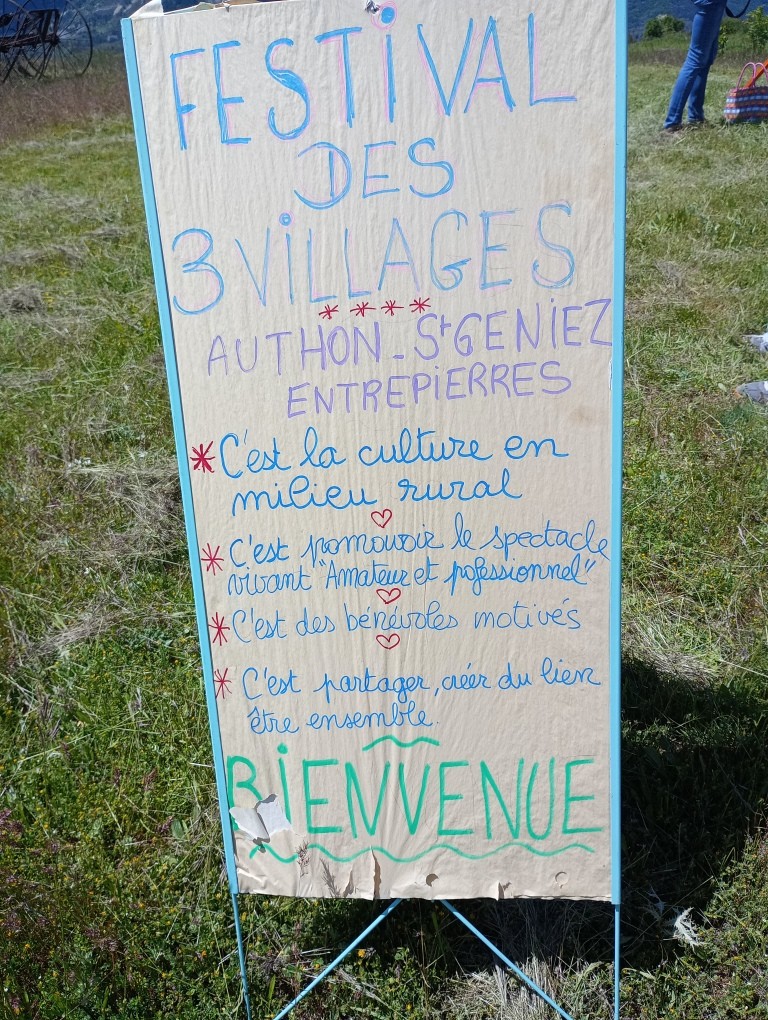 FESTIVAL
DES
3 VILLAGES
****
AUTHON - St GENIEZ
ENTREPIERRES
* C'est la culture en
milieu rural
* C'est promouvoir le spectacle
vivant "Amateur et pofessionnel"
* C'est des bénévoles motivés
* C'est partager, créer du lien
être ensemble.
BIENVENUE